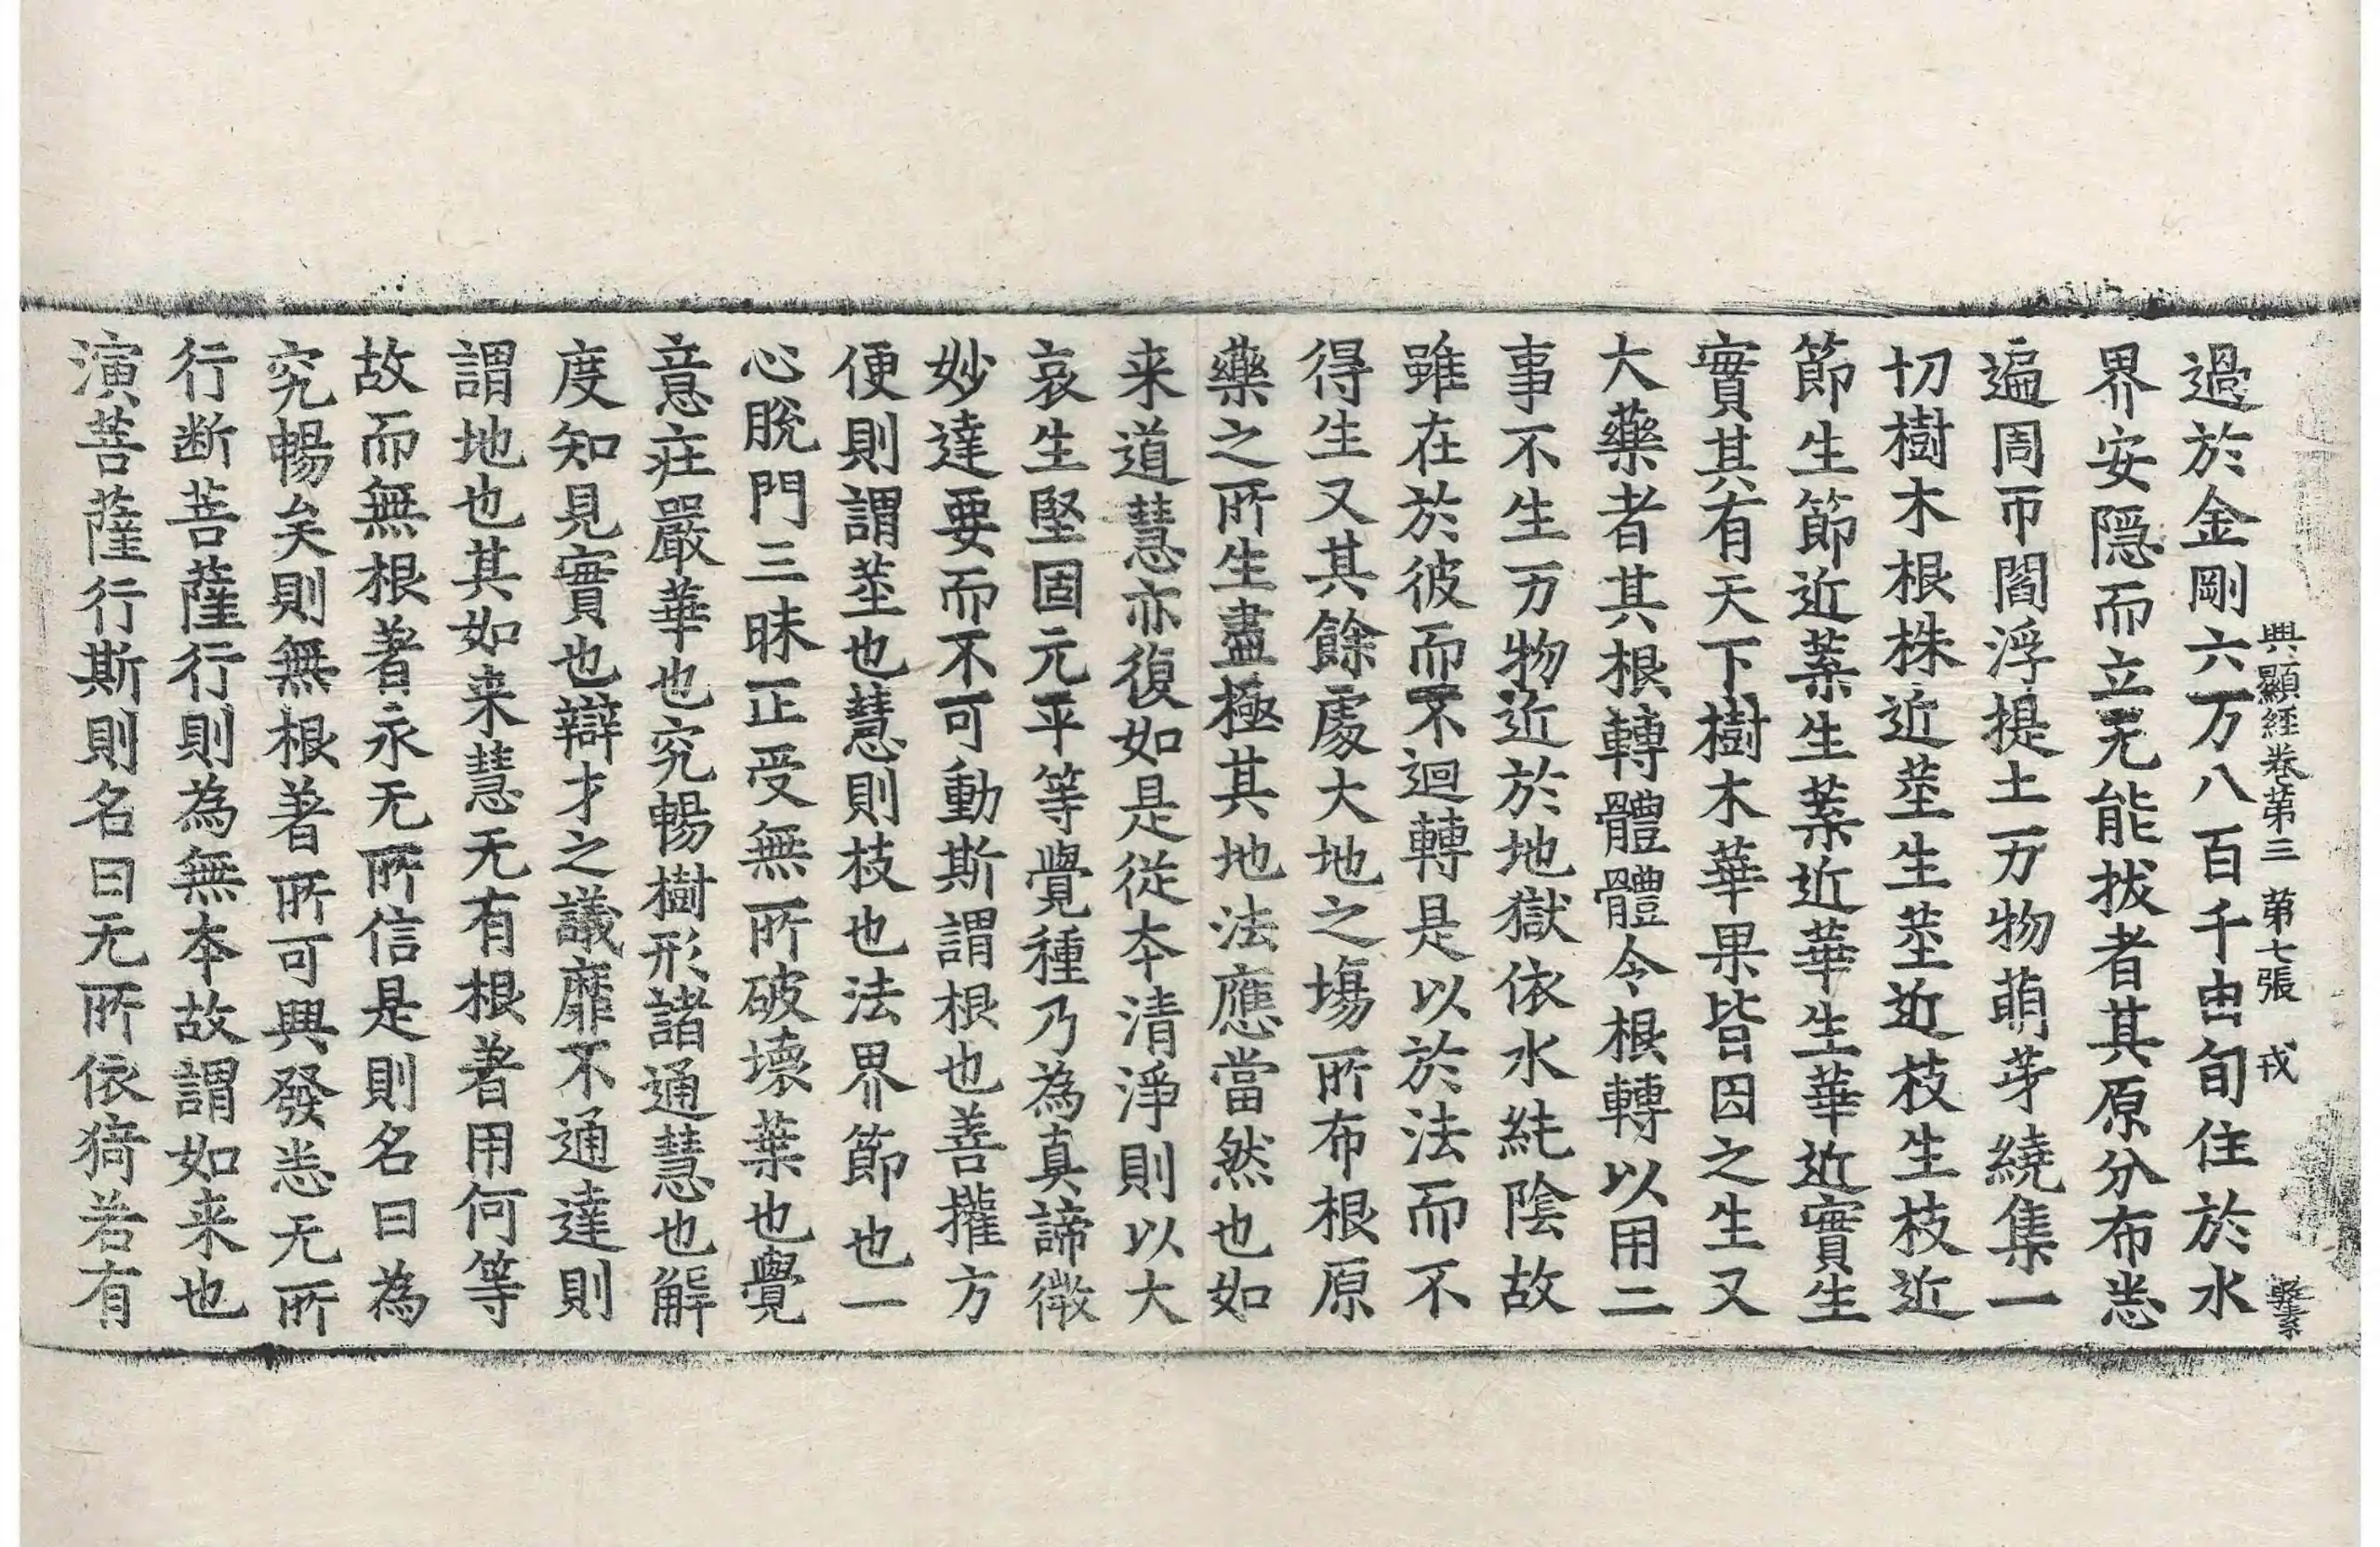 興顯經卷第三 第七張 戎
過於金剛六万八百千由旬住於水
界安隱而立无能拔者其原分布悉
遍周帀閻浮提土万物萌芽繞集一
切樹木根株近莖生莖近枝生枝近
節生節近葉生葉近華生華近實生
實其有天下樹木華果皆因之生又
大藥者其根轉體體令根轉以用二
事不生万物近於地獄依水純陰故
雖在於彼而不迴轉是以於法而不
得生又其餘處大地之塲所布根原
藥之所生盡極其地法應當然也如
来道慧亦復如是從本清淨則以大
哀生堅固元平等覺種乃為真諦微
妙達要而不可動斯謂根也善權方
便則謂莖也慧則枝也法界節也一
心脫門三昧正受無所破壞葉也覺
意庄嚴華也究暢樹形諸通慧也解
度知見實也辯才之議靡不通達則
謂地也其如来慧无有根著用何等
故而無根著永无所信是則名曰為
究暢矣則無根著所可興發悉无所
行断菩薩行則為無本故謂如来也
演菩薩行斯則名曰无所依猗若有